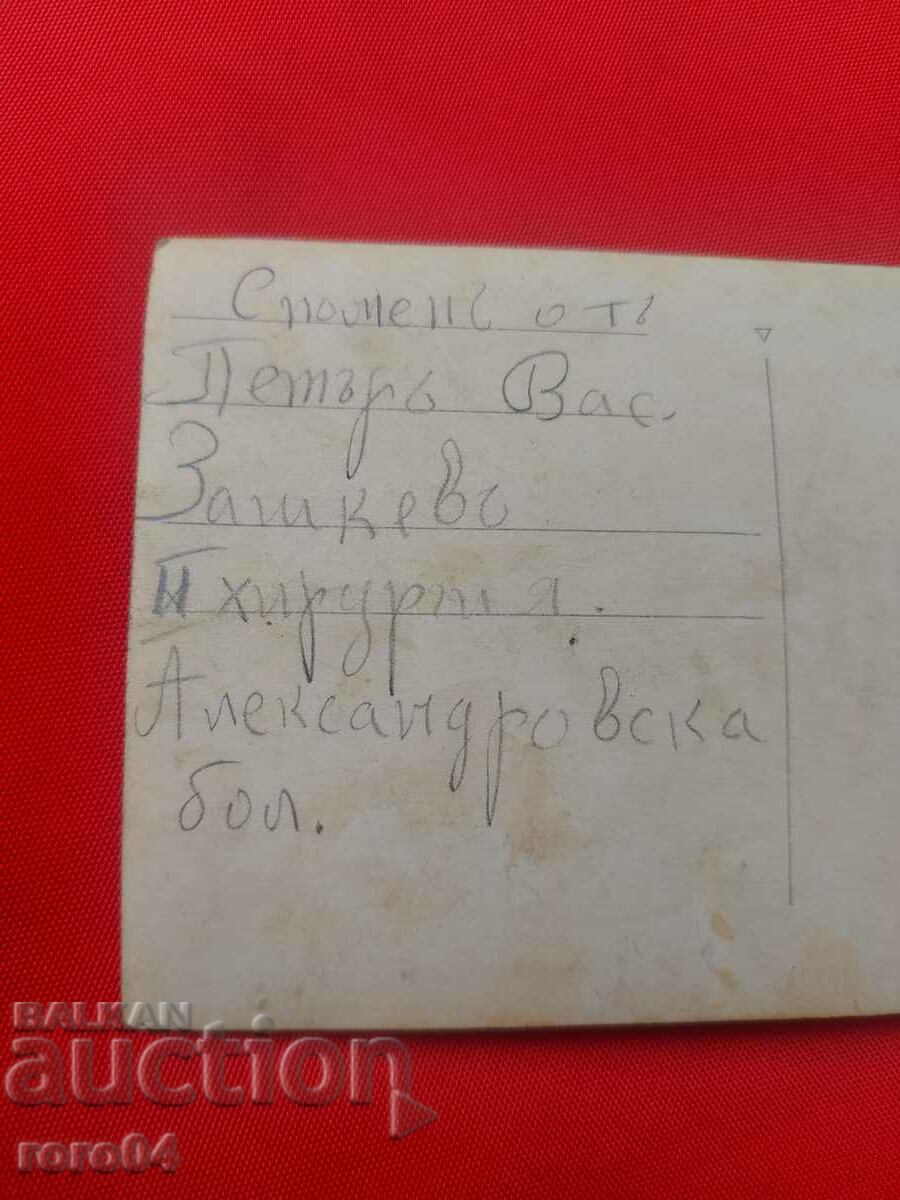 Споменъ отъ
Петъръ Вас.
Зашкевъ
II хирургия.
Александровска
бол.
BALKAN
auction
roro04